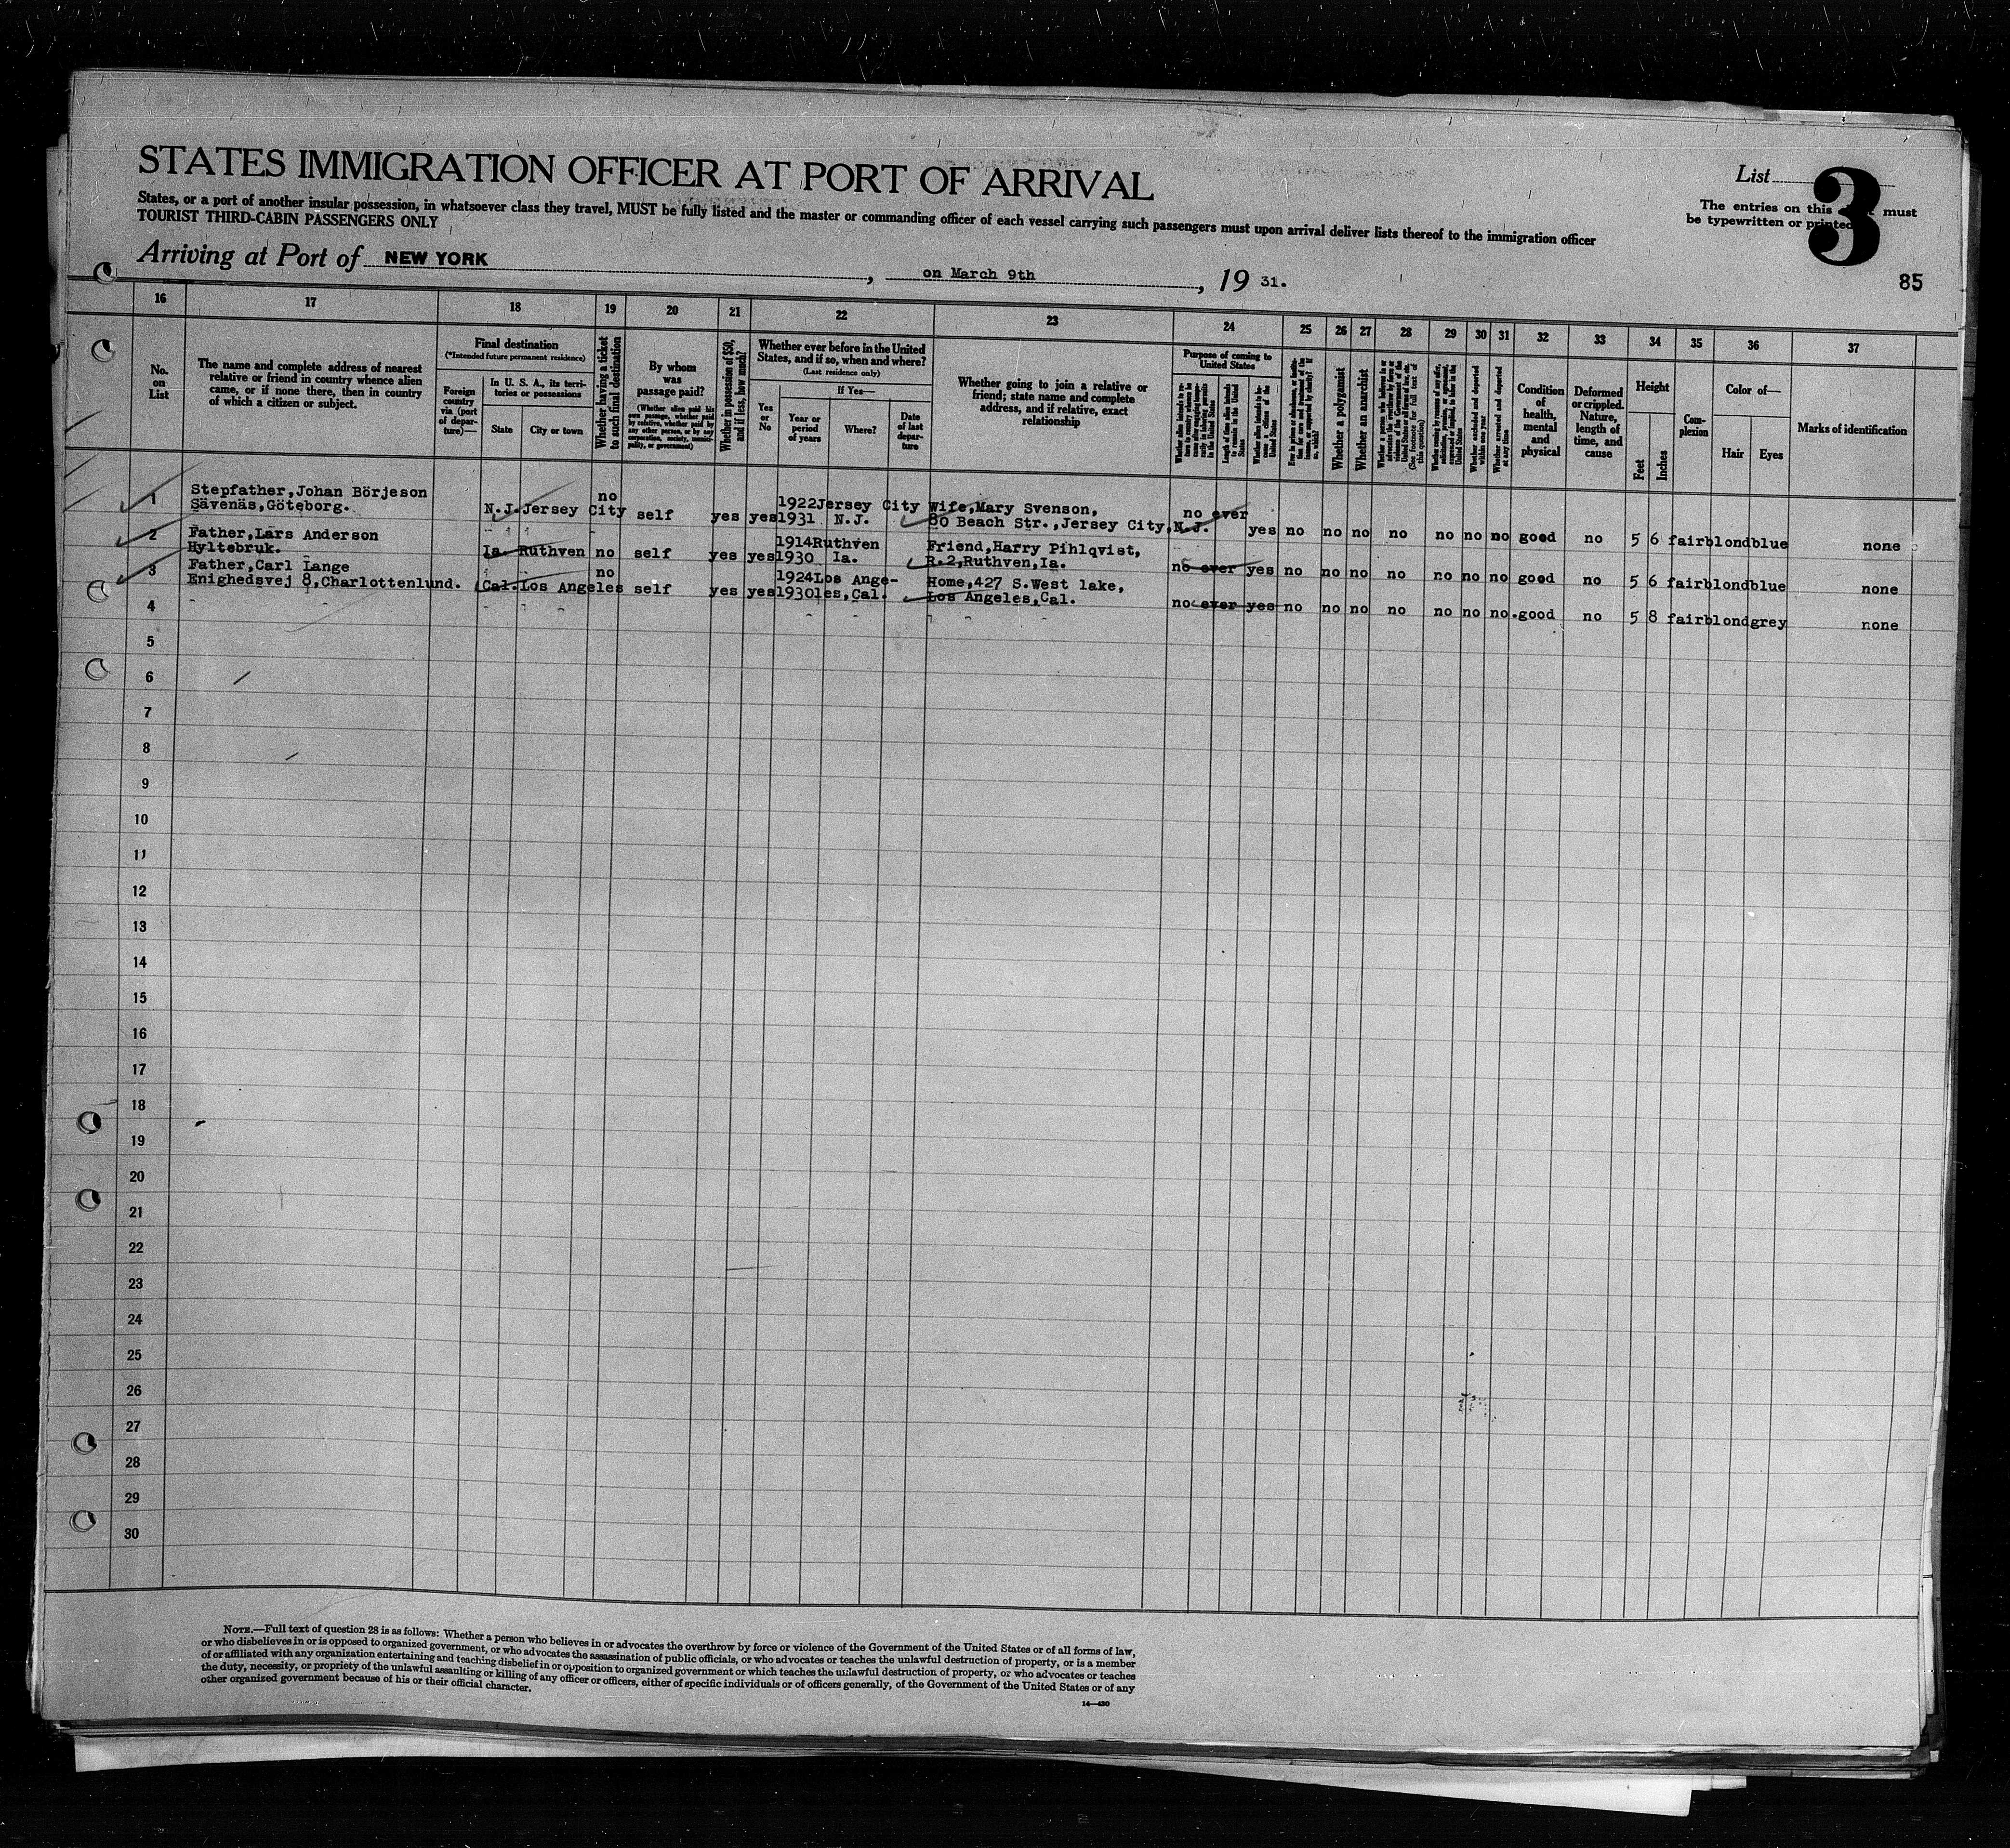 STATES IMMIGRATION OFFICER AT PORT OF ARRIVAL
List
3
States, or a port of another insular possession, in whatsoever class they travel, MUST be fully listed and the master or commanding officer of each vessel carrying such passengers must upon arrival deliver lists thereof to the immigration officer
TOURIST THIRD-CABIN PASSENGERS ONLY
The entries on this must
be typewritten or printed
Arriving at Port of NEW YORK, on March 9th, 19 31.
85
16 17 18 19 20 21 22 23 24 25 26 27 28 29 30 31 32 33 34 35 36 37
No.
on
List
The name and complete address of nearest
relative or friend in country whence alien
came, or if none there, then in country
of which a citizen or subject.
Final destination
(*Intended future permanent residence)
Foreign
country
via (port
of depar-
ture)—
In U. S. A., its terri-
tories or possessions
State
City or town
Whether having a ticket
to such final destination
By whom
was
passage paid?
(Whether alien paid his
own passage, whether paid
by relative, whether paid by
any other person, or by any
corporation, society, munici-
pality, or government)
Whether in possession of $50,
and if less, how much?
Whether ever before in the United
States, and if so, when and where?
(Last residence only)
Yes
or
No
If Yes—
Year or
period
of years
Where?
Date
of last
depar-
ture
Whether going to join a relative or
friend; state name and complete
address, and if relative, exact
relationship
Purpose of coming to
United States
Length of time alien intends
to remain in the United
States
Whether alien intends to be-
come a citizen of the
United States
Whether a polygamist
Whether an anarchist
(See footnote for full text of
this question)
Whether arrested and deported
at any time
Condition
of
health,
mental
and
physical
Deformed
or crippled.
Nature,
length of
time, and
cause
Height
Feet
Inches
Com-
plexion
Color of—
Hair
Eyes
Marks of identification
1 Stepfather,Johan Börjeson
Sävenäs,Göteborg. N.J. Jersey City no self yes yes 1922 1931 Jersey City N.J. Wife,Mary Svenson,
80 Beach Str.,Jersey City,N.J. no ever yes no no no no no no no good no 5 6 fair blond blue none
2 Father,Lars Anderson
Hyltebruk. Ia. Ruthven no self yes yes 1914 1930 Ruthven Ia. Friend,Harry Pihlqvist,
R.2,Ruthven,Ia. no ever yes no no no no no no no good no 5 6 fair blond blue none
3 Father,Carl Lange
Enighedsvej 8,Charlottenlund. Cal. Los Angeles no self yes yes 1924 1930 Los Ange-
les,Cal. Home,427 S.West lake,
Los Angeles,Cal. no ever yes no no no no no no no. good no 5 8 fair blond grey none
4
5
6
7
8
9
10
11
12
13
14
15
16
17
18
19
20
21
22
23
24
25
26
27
28
29
30
NOTE.—Full text of question 28 is as follows: Whether a person who believes in or advocates the overthrow by force or violence of the Government of the United States or of all forms of law,
or who disbelieves in or is opposed to organized government, or who advocates the assassination of public officials, or who advocates or teaches the unlawful destruction of property, or is a member
of or affiliated with any organization entertaining and teaching disbelief in or opposition to organized government or which teaches the unlawful destruction of property, or who advocates or teaches
the duty, necessity, or propriety of the unlawful assaulting or killing of any officer or officers, either of specific individuals or of officers generally, of the Government of the United States or of any
other organized government because of his or their official character.
14—430